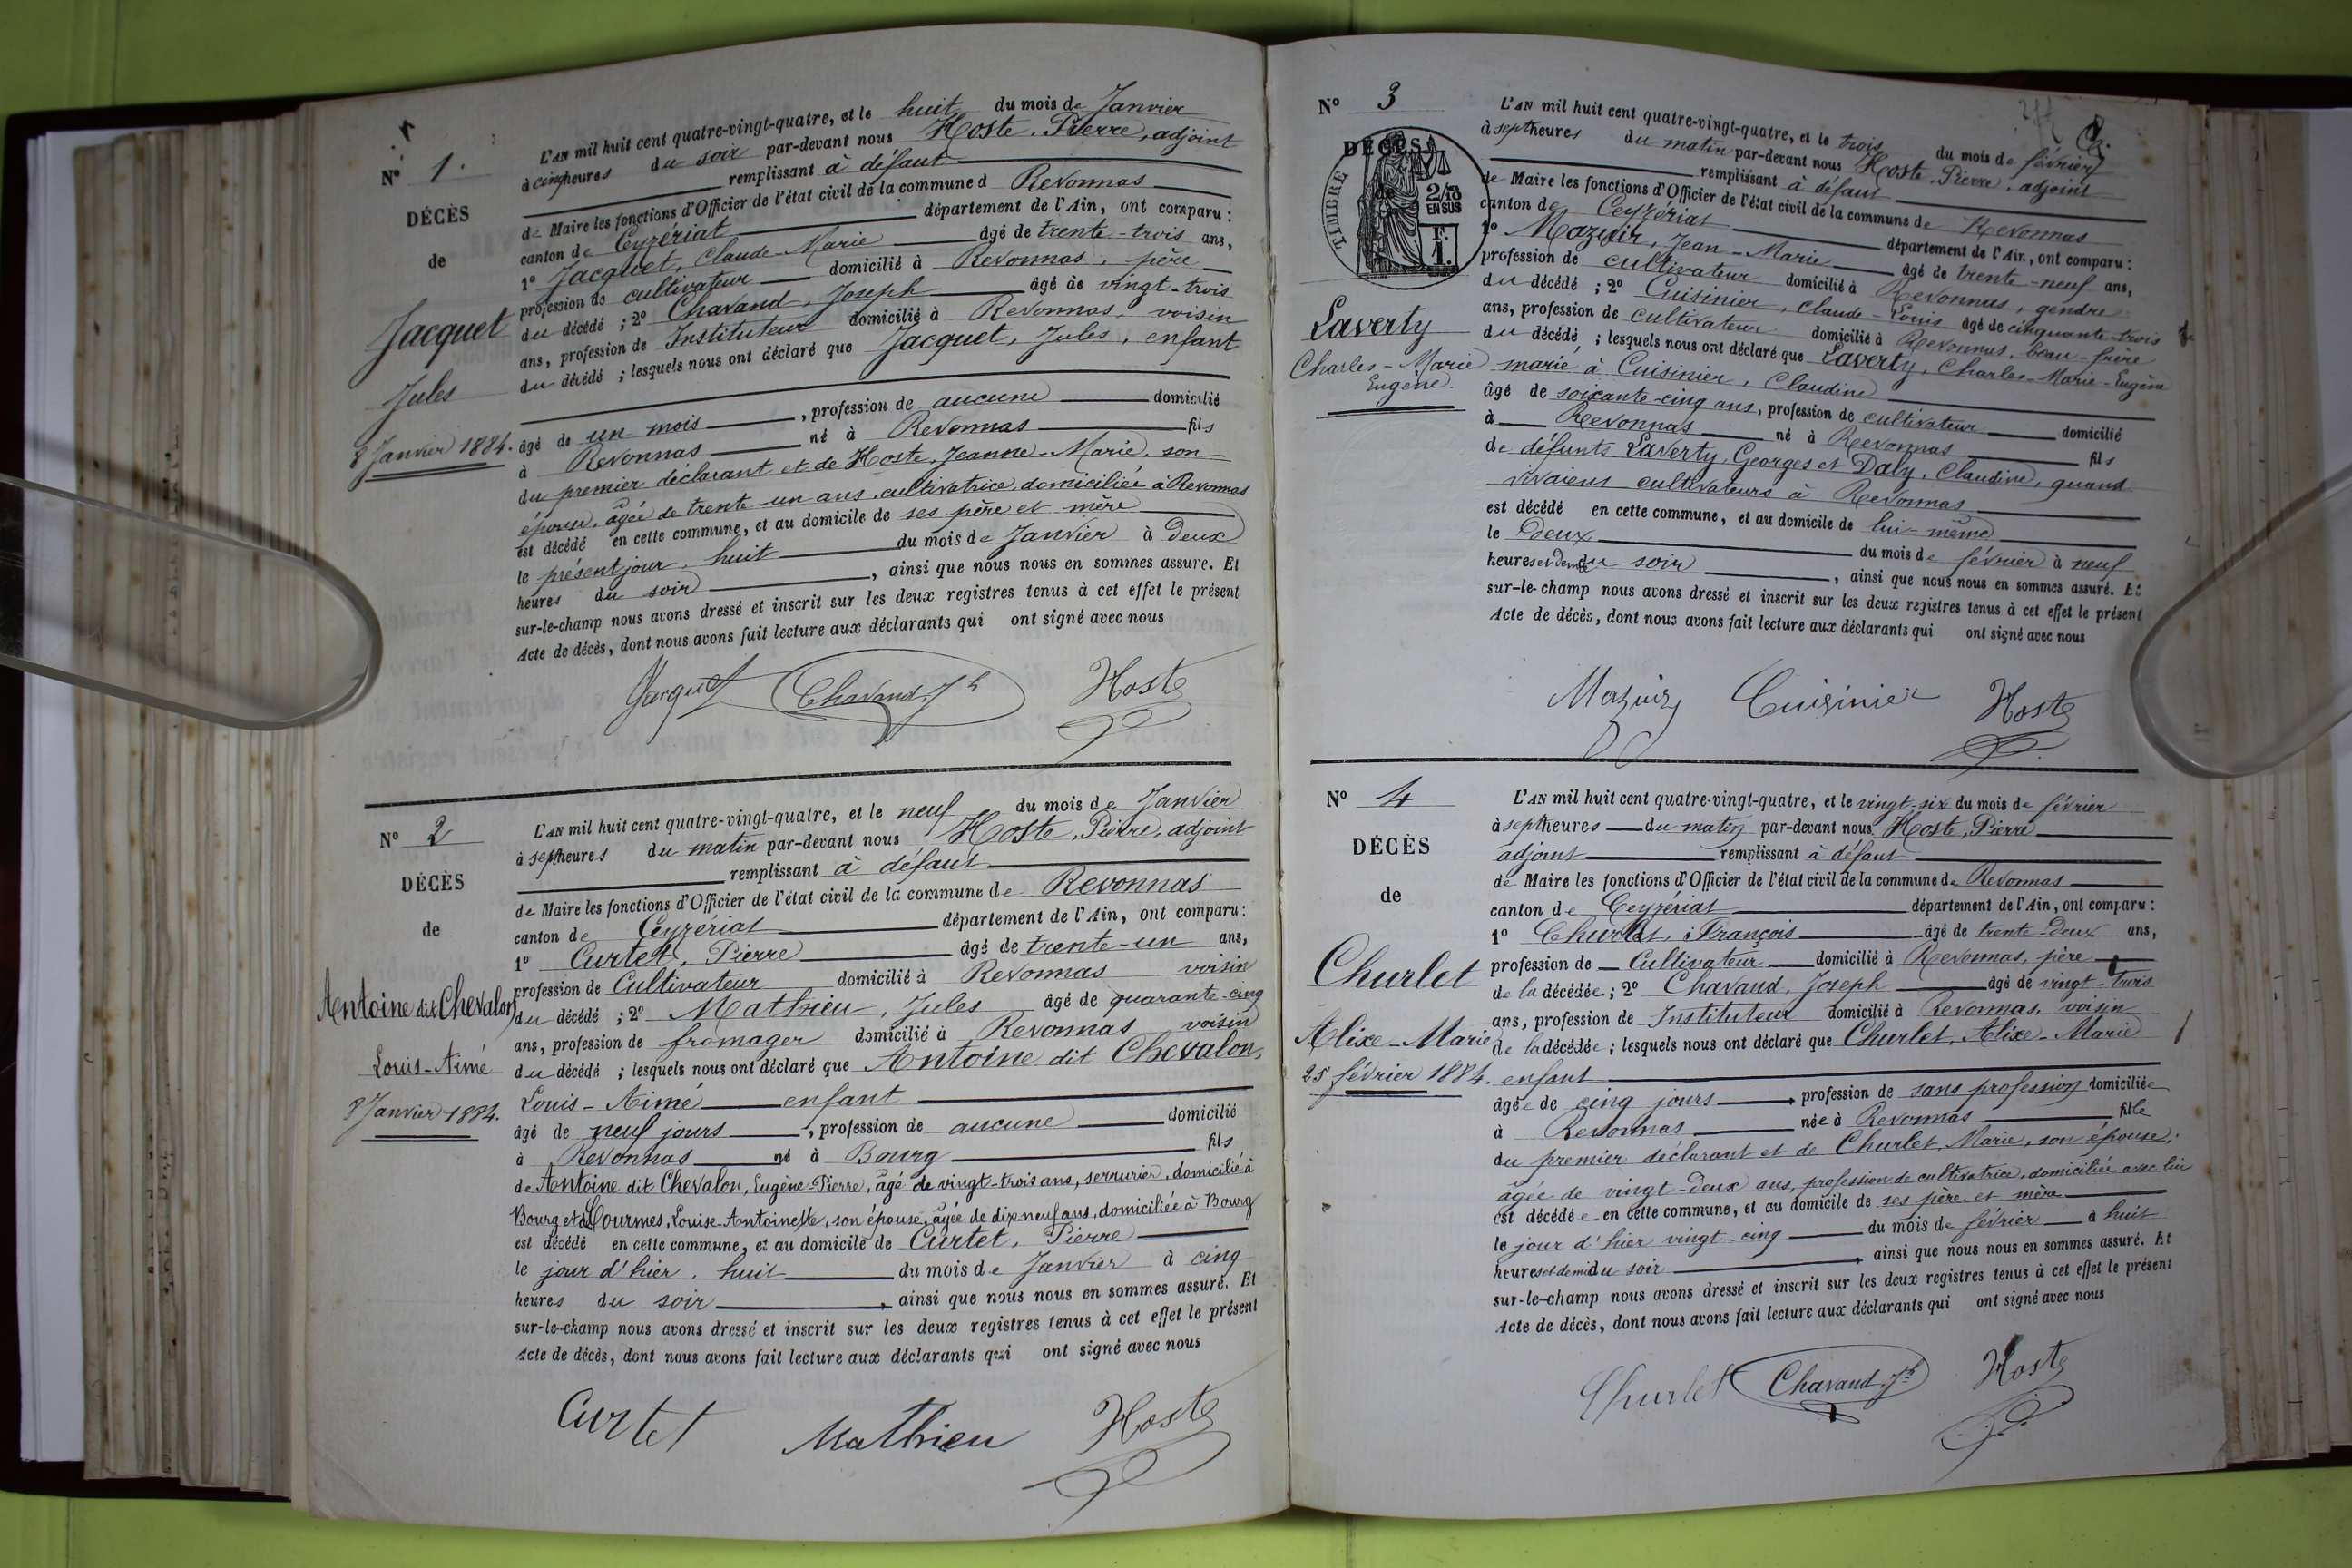 1
N° 1.
DÉCÈS
de
Jacquet
Jules
8 Janvier 1884.
L'AN mil huit cent quatre-vingt-quatre, et le huit du mois de Janvier
à cinq heures du soir par-devant nous Hoste, Pierre, adjoint
remplissant à défaut
de Maire les fonctions d'Officier de l'état civil de la commune d Revonnas
canton de Ceyzériat département de l'Ain, ont comparu :
1° Jacquet, Claude-Marie âgé de trente-trois ans,
profession de cultivateur domicilié à Revonnas, père
du décédé ; 2° Chavand, Joseph âgé de vingt-trois
ans, profession de Instituteur domicilié à Revonnas, voisin
du décédé ; lesquels nous ont déclaré que Jacquet, Jules, enfant
âgé de un mois, profession de aucune domicilié
à Revonnas né à Revonnas fils
du premier déclarant et de Hoste, Jeanne-Marie, son
épouse, âgée de trente-un ans, cultivatrice, domiciliée à Revonnas
est décédé en cette commune, et au domicile de ses père et mère
le présent jour, huit du mois de Janvier à deux
heures du soir, ainsi que nous nous en sommes assuré. Et
sur-le-champ nous avons dressé et inscrit sur les deux registres tenus à cet effet le présent
Acte de décès, dont nous avons fait lecture aux déclarants qui ont signé avec nous
Jacquet Chavand Jh Hoste
N° 2
DÉCÈS
de
Antoine dit Chevalon
Louis-Aimé
8 Janvier 1884.
L'AN mil huit cent quatre-vingt-quatre, et le neuf du mois de Janvier
à sept heures du matin par-devant nous Hoste, Pierre, adjoint
remplissant à défaut
de Maire les fonctions d'Officier de l'état civil de la commune de Revonnas
canton de Ceyzériat département de l'Ain, ont comparu :
1° Curtet, Pierre âgé de trente-un ans,
profession de Cultivateur domicilié à Revonnas voisin
du décédé ; 2° Mathieu, Jules âgé de quarante-cinq
ans, profession de fromager domicilié à Revonnas voisin
du décédé ; lesquels nous ont déclaré que Antoine dit Chevalon,
Louis-Aimé enfant
âgé de neuf jours, profession de aucune domicilié
à Revonnas né à Bourg fils
de Antoine dit Chevalon, Eugène-Pierre, âgé de vingt-trois ans, serrurier, domicilié à
Bourg et de Courmes, Louise-Antoinette, son épouse, âgée de dix-neuf ans, domiciliée à Bourg
est décédé en cette commune, et au domicile de Curtet, Pierre
le jour d'hier, huit du mois de Janvier à cinq
heures du soir, ainsi que nous nous en sommes assuré. Et
sur-le-champ nous avons dressé et inscrit sur les deux registres tenus à cet effet le présent
Acte de décès, dont nous avons fait lecture aux déclarants qui ont signé avec nous
Curtet Mathieu Hoste
N° 3
DÉCÈS
de
TIMBRE
2/10
EN SUS
F.
1.
Laverty
Charles-Marie
Eugène.
L'AN mil huit cent quatre-vingt-quatre, et le trois du mois de février
à sept heures du matin par-devant nous Hoste, Pierre, adjoint
remplissant à défaut
de Maire les fonctions d'Officier de l'état civil de la commune de Revonnas
canton de Ceyzériat département de l'Ain, ont comparu :
1° Mazuir, Jean-Marie âgé de trente-neuf ans,
profession de cultivateur domicilié à Revonnas, gendre
du décédé ; 2° Cuisinier, Claude-Louis âgé de cinquante-trois
ans, profession de cultivateur domicilié à Revonnas, beau-frère
du décédé ; lesquels nous ont déclaré que Laverty, Charles-Marie-Eugène
marié à Cuisinier, Claudine
âgé de soixante-cinq ans, profession de cultivateur domicilié
à Revonnas né à Revonnas fils
de défunts Laverty, Georges et Daly, Claudine, quand
vivaient cultivateurs à Revonnas
est décédé en cette commune, et au domicile de lui-même
le Deux du mois de février à neuf
heures et demie du soir, ainsi que nous nous en sommes assuré. Et
sur-le-champ nous avons dressé et inscrit sur les deux registres tenus à cet effet le présent
Acte de décès, dont nous avons fait lecture aux déclarants qui ont signé avec nous
Mazuir Cuisinier Hoste
N° 4
DÉCÈS
de
Churlet
Alixe-Marie
25 février 1884.
L'AN mil huit cent quatre-vingt-quatre, et le vingt-six du mois de février
à sept heures du matin par-devant nous Hoste, Pierre
adjoint remplissant à défaut
de Maire les fonctions d'Officier de l'état civil de la commune de Revonnas
canton de Ceyzériat département de l'Ain, ont comparu :
1° Churlet, François âgé de trente-deux ans,
profession de Cultivateur domicilié à Revonnas, père
de la décédée ; 2° Chavand, Joseph âgé de vingt-trois
ans, profession de Instituteur domicilié à Revonnas, voisin
de la décédée ; lesquels nous ont déclaré que Churlet, Alixe-Marie
enfant
âgée de cinq jours, profession de sans profession domiciliée
à Revonnas née à Revonnas fille
du premier déclarant et de Churlet, Marie, son épouse,
âgée de vingt-deux ans, profession de cultivatrice, domiciliée avec lui
est décédée en cette commune, et au domicile de ses père et mère
le jour d'hier vingt-cinq du mois de février à huit
heures et demie du soir, ainsi que nous nous en sommes assuré. Et
sur-le-champ nous avons dressé et inscrit sur les deux registres tenus à cet effet le présent
Acte de décès, dont nous avons fait lecture aux déclarants qui ont signé avec nous
Churlet Chavand Jh Hoste